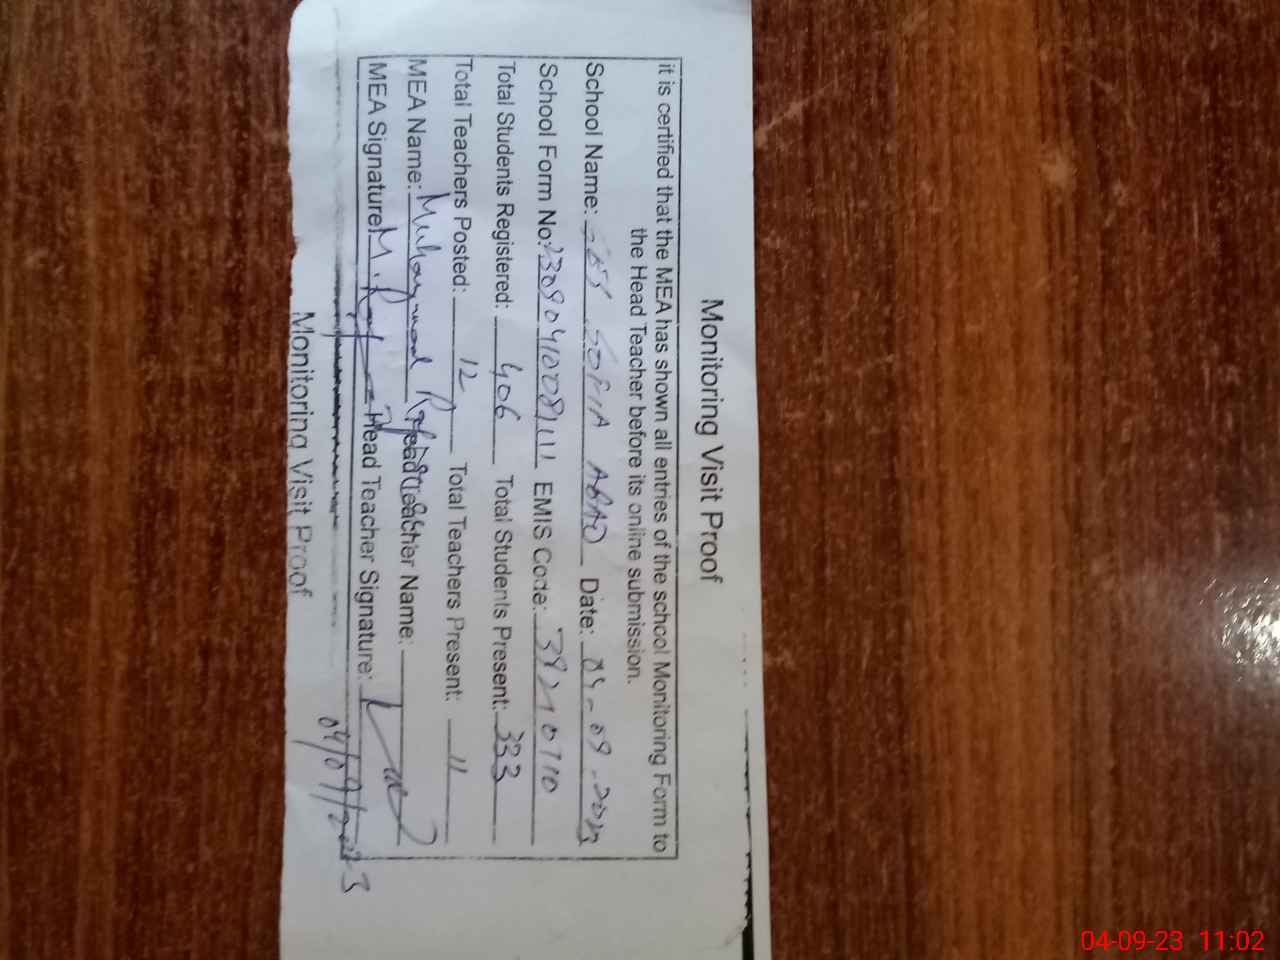 Monitoring Visit Proof
it is certified that the MEA has shown all entries of the school Monitoring Form to
the Head Teacher before its online submission.
School Name: SOFIA ABAD Date: 04-09-2023
School Form No: EMIS Code:
Total Students Registered: 406 Total Students Present: 333
Total Teachers Posted: 12 Total Teachers Present: 11
MEA Name: Muhammad Head Teacher Name:
MEA Signature M. Head Teacher Signature:
04/09/2023
Monitoring Visit Proof
04-09-23 11:02